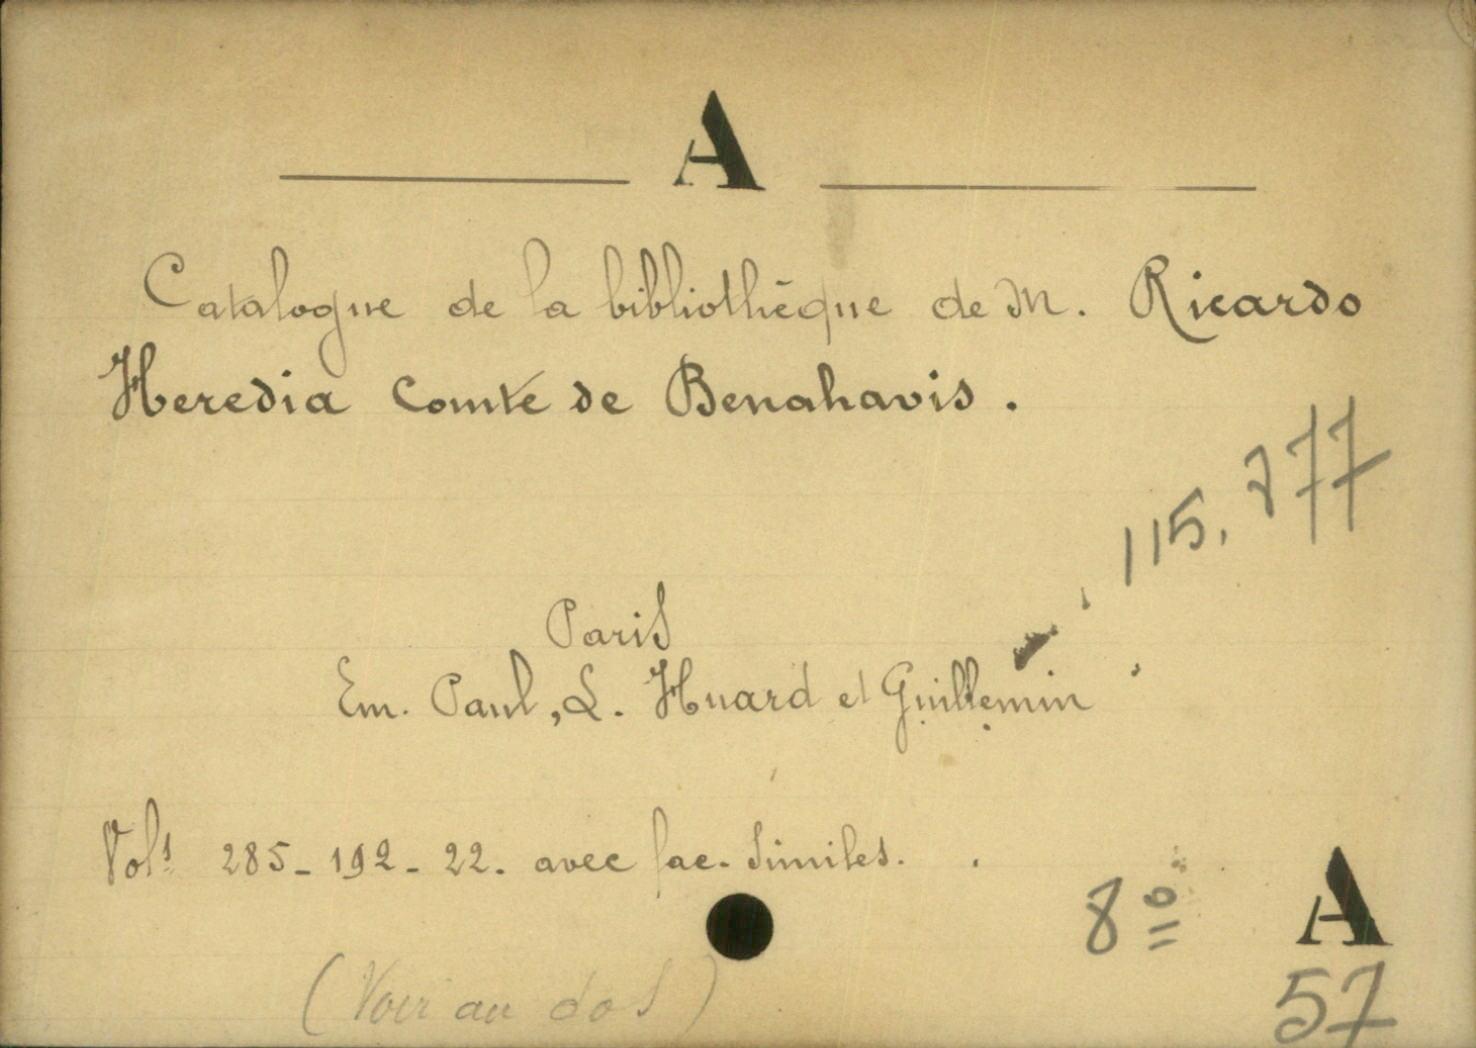 A
Catalogue de la bibliothèque de M. Ricardo
Heredia Comte de Benahavis.
115,777
Paris
Em. Paul, L. Huard et Guillemin
Vols 285-192-22. avec fac-similes.
8º A
(Voir au dos) 57